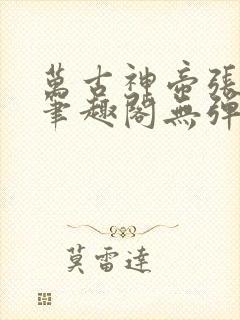 萬古神帝張
筆趣閣無彈
莫雷達